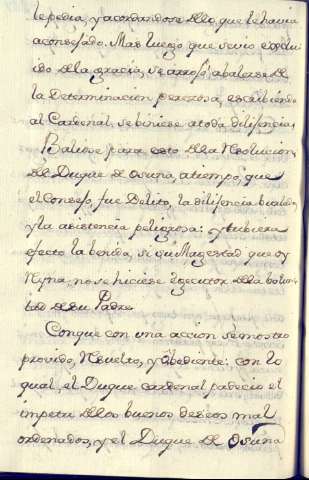 le pedia, y acordandose dello que le havia
aconsejado. Mas luego que se vio exclui
ido de la gracia, se arrojó a balerse de
la Determinacion perezosa, escribiendo
al Cardenal se biniese a toda dilijencia,
Baliose para esto de la Resolucion
del Duque de Osuna, a tiempo, que
el Consejo, fue Delito, la dilijencia
y la asistencia peligrosa: y tubiera
efecto la benida, si su Magestad que oy
Reyna, no se hiciese Egecutor de la bolun
tad de su Padre.
Conque con una accion se mostro
provido, Resuelto, y obediente: con lo
qual, el Duque Cardenal padecio el
impetu de los buenos deseos mal
ordenados, y el Duque de Osuna